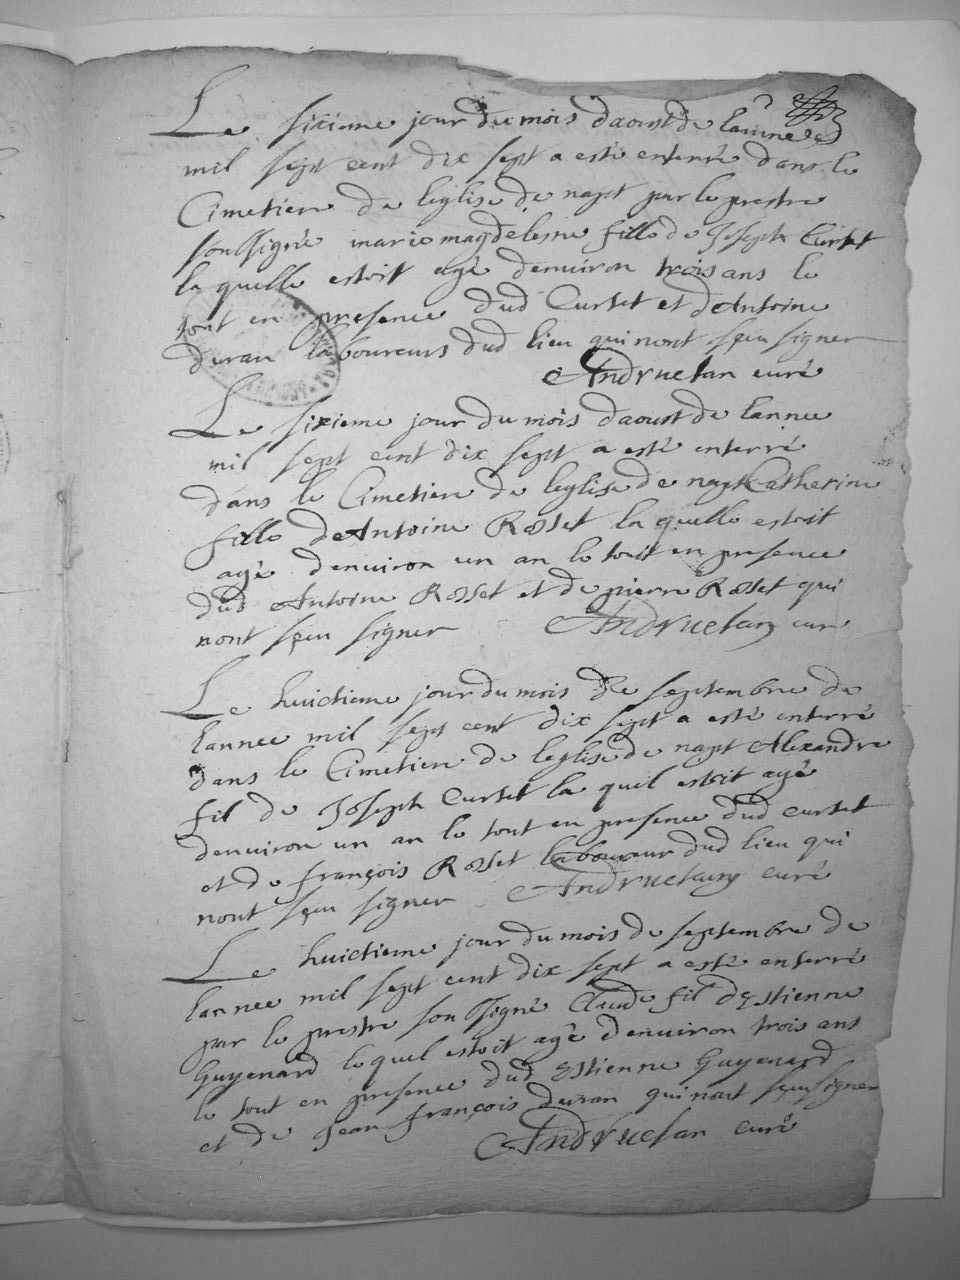 Le sixieme jour du mois daoust de lannee
mil sept cent dix sept a esté enterré dans le
Cimetiere de leglise de napt par le prestre
soussigné marie magdelesne fille de Joseph Curtet
la quelle estoit agé denviron trois ans le
tout en presence dud Curtet et dAntoine
duran laboureurs dud lieu qui nont sçeu signer
Andruetan curé
Le sixieme jour du mois daoust de lannee
mil sept cent dix sept a esté enterré
dans le Cimetiere de leglise de napt Catherine
fille dAntoine Rosset la quelle estoit
agé denviron un an le tout en presence
dud Antoine Rosset et de pierre Rosset qui
nont sçeu signer Andruetan curé
Le huictieme jour du mois de septembre de
lannee mil sept cent dix sept a esté enterré
dans le Cimetiere de leglise de napt Alexandre
fil de Joseph Curtet la quil estoit agé
denviron un an le tout en presence dud Curtet
et de françois Rosset laboureur dud lieu qui
nont sçeu signer Andruetan curé
Le huictieme jour du mois de septembre de
lannee mil sept cent dix sept a esté enterré
par le prestre soussigné Claude fil dEstienne
Guyenard lequel estoit agé denviron trois ans
le tout en presence dud Estienne Guyenard
et de Jean françois Duran qui nont sçeu signer
Andruetan curé